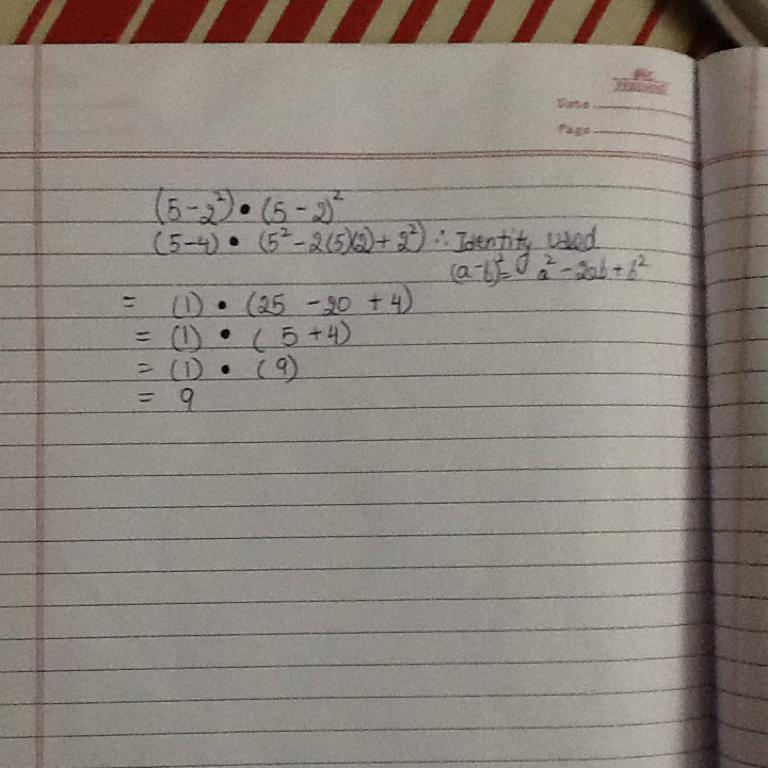 Date
Page
(5-2²)•(5-2)²
(5-4) • (5²-2(5)(2)+2²) ∴ Identity used
(a-b)² = a²-2ab+b²
= (1) • (25 -20 +4)
= (1) • ( 5+4)
= (1) • (9)
= 9